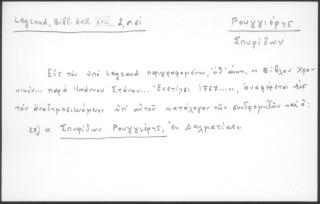 Legrand, Bibl. Hell. XVIII, 2, σ. 61
Ρουγγιέρης
Σπυρίδων
Εἰς τὸν ὑπὸ Legrand περιγραφόμενον, "Βίβλον Χρο-
νικήν... παρὰ Ἰωάννου Στάνου... Ἐνετίῃσι 1767...", ἀναφέρεται εἰς
τὸν ἀναδημοσιευόμενον ὑπ' αὐτοῦ κατάλογον τῶν συνδρομητῶν καὶ ὁ:
"Σπυρίδων Ρουγγιέρης, ἐκ Δαλματίας"